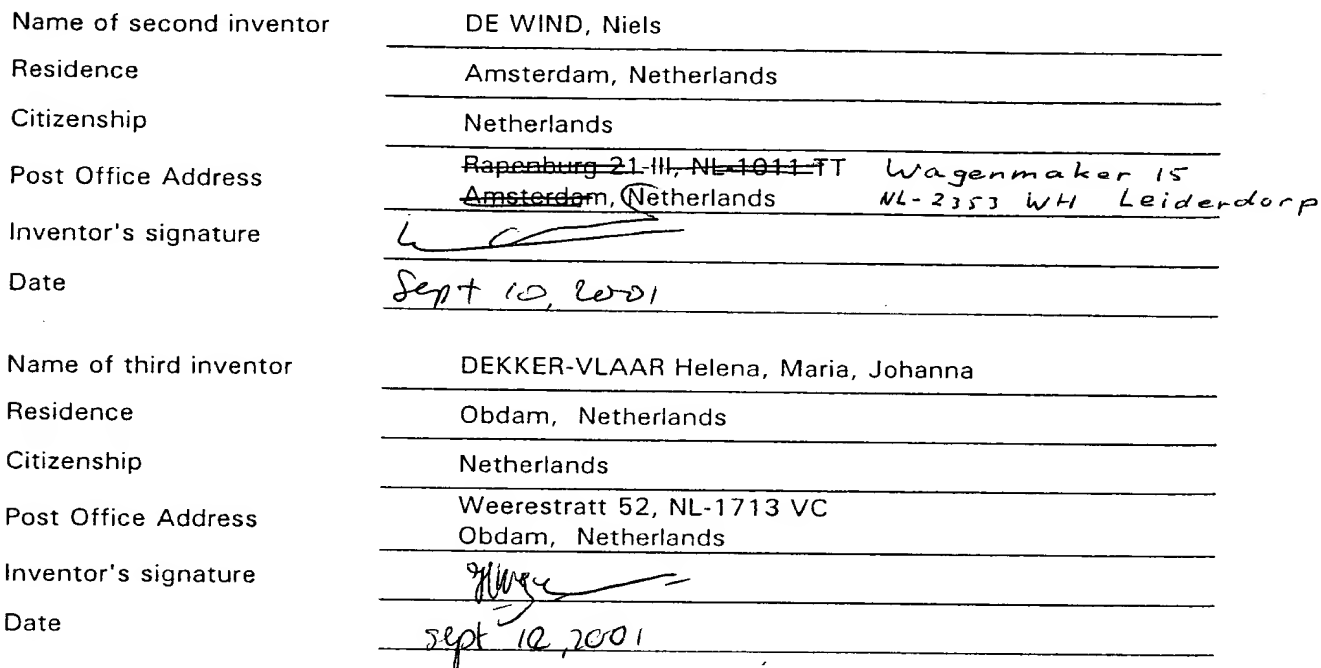 Name of second inventor DE WIND, Niels
Residence Amsterdam, Netherlands
Citizenship Netherlands
Post Office Address Rapenburg 21-III, NL-1011 TT Wagenmaker 15
Amsterdam, Netherlands NL-2353 WH Leiderdorp
Inventor's signature
Date Sept 10, 2001
Name of third inventor DEKKER-VLAAR Helena, Maria, Johanna
Residence Obdam, Netherlands
Citizenship Netherlands
Post Office Address Weerestratt 52, NL-1713 VC
Obdam, Netherlands
Inventor's signature
Date sept 12, 2001